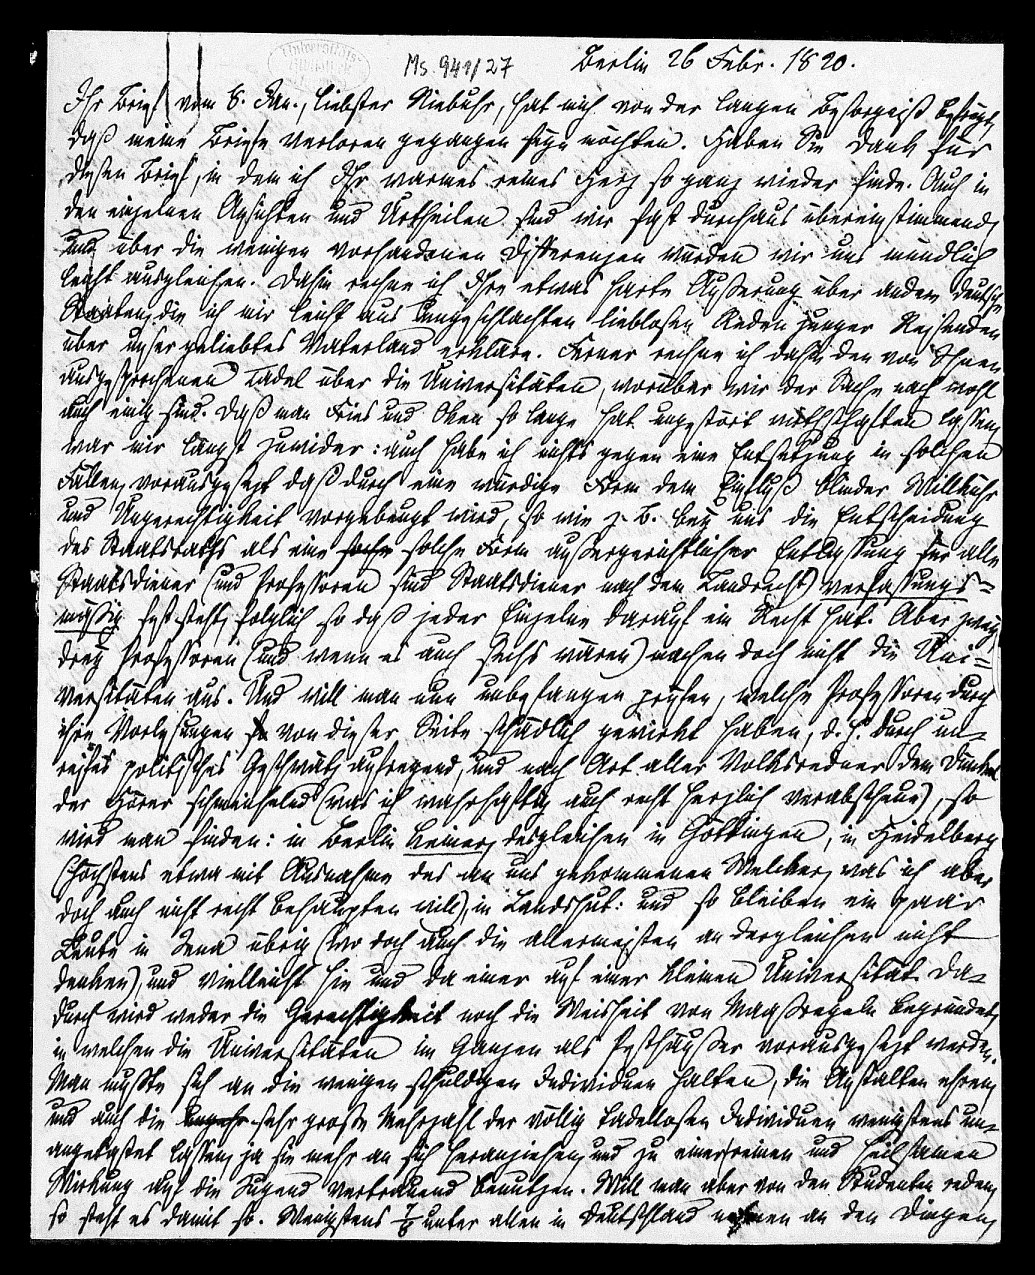 Universitäts-
Ms. 941/27
Berlin 26 Febr. 1820.
Ihr Brief vom 8. Jan., liebster Niebuhr, hat mich von der langen Besorgniß befreyt,
daß meine Briefe verloren gegangen seyn möchten. Haben Sie Dank für
diesen Brief, in dem ich Ihr warmes reines Herz so ganz wieder finde. Auch in
den einzelnen Ansichten und Urtheilen sind wir fast durchaus übereinstimmend,
und über die wenigen vorhandenen Differenzen würden wir uns mündlich
leicht ausgleichen. Dahin rechne ich Ihre etwas harte Äußerung über andere deutsche
Staaten, die ich mir leicht aus ungeschlachten lieblosen Reden junger Reisenden
über unser geliebtes Vaterland erkläre. Ferner rechne ich dahin den von Ihnen
ausgesprochenen Tadel über die Universitäten, worüber wir der Sache nach wohl
auch einig sind. Daß man Fries und Oken so lange hat ungestört wirthschaften lassen,
war mir längst zuwider: auch habe ich nichts gegen eine Entsetzung in solchen
Fällen, vorausgesetzt daß durch eine würdige Form dem Einfluß blinder Willkühr
und Ungerechtigkeit vorgebeugt wird, so wie z. B. bey uns die Entscheidung
des Staatsraths als eine solche Form außergerichtlicher Entlassung für alle
Staatsdiener (und Professoren sind Staatsdiener nach dem Landrecht) verfassungs-
mäßig feststeht, folglich so daß jeder Einzelne darauf ein Recht hat. Aber zwey,
drey Professoren (und wenn es auch sechs wären) machen doch nicht die Uni-
versitäten aus. Und will man nun unbefangen prüfen, welche Professoren durch
ihre Vorlesungen von dieser Seite schädlich gewirkt haben, d. h. durch un-
reifes politisches Geschwätz aufregend, und nach Art aller Volksredner dem Dünkel
der Hörer schmeichelnd (was ich wahrhaftig auch recht herzlich verabscheue), so
wird man finden: in Berlin Keiner, desgleichen in Göttingen, in Heidelberg
(höchstens etwa mit Ausnahme des an uns gekommenen Welcker, was ich aber
doch auch nicht recht behaupten will), in Landshut: und so bleiben ein paar
Leute in Jena übrig (wo doch auch die allermeisten an dergleichen nicht
denken), und vielleicht hie und da einer auf einer kleinen Universität. Da-
durch wird weder die Gerechtigkeit noch die Weisheit von Maßregeln begründet,
in welchen die Universitäten im Ganzen als Pesthäuser vorausgesetzt werden.
Man mußte sich an die wenigen schuldigen Individuen halten, die Anstalten ehren,
und auch die sehr große Mehrzahl der völlig tadellosen Individuen wenigstens un-
angetastet lassen, ja sie mehr an sich heranziehen, und zu einer reinen und heilsamen
Wirkung auf die Jugend vertrauend benutzen. Will man aber von den Studenten reden,
so steht es damit so. Wenigstens 7/8 unter allen in Deutschland nehmen an den Dingen,